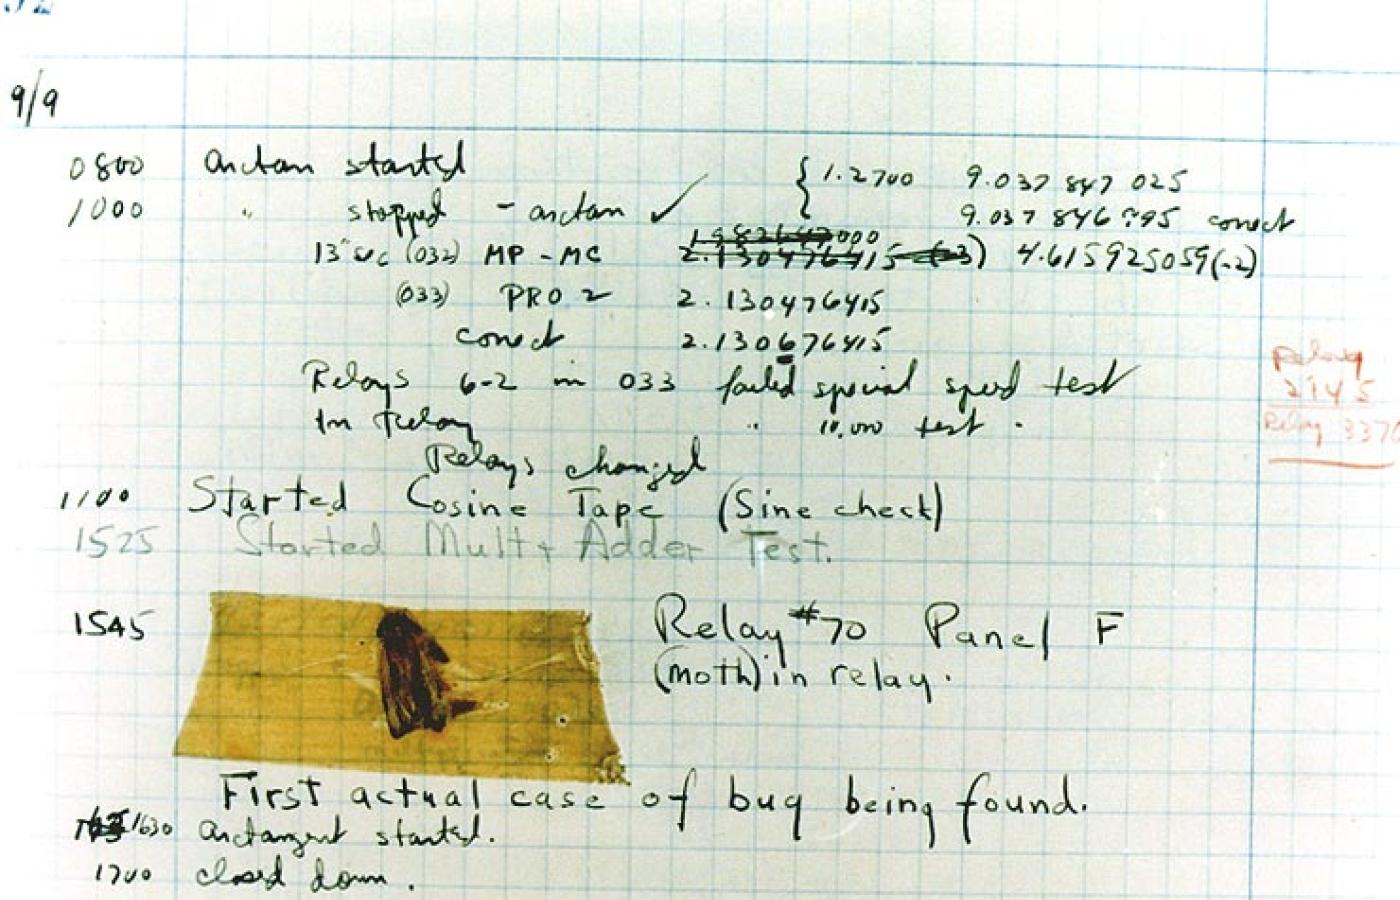 9/9
0800 arctan started { 1.2700 9.037 847 025
1000 " stopped - arctan ✓ 9.037 846 995 correct
13" sec (032) MP - MC 1.982647000
2.130476415 (-3) 4.615925059(-2)
(033) PRO 2 2.130476415
correct 2.130676415
Relays 6-2 in 033 failed special speed test
In Relay " 10.000 test .
Relay
2145
Relay 3370
Relays changed
1100 Started Cosine Tape (Sine check)
1525 Started Mult + Adder Test.
1545 Relay #70 Panel F
(moth) in relay.
First actual case of bug being found.
1630 arctangent started.
1700 closed down.